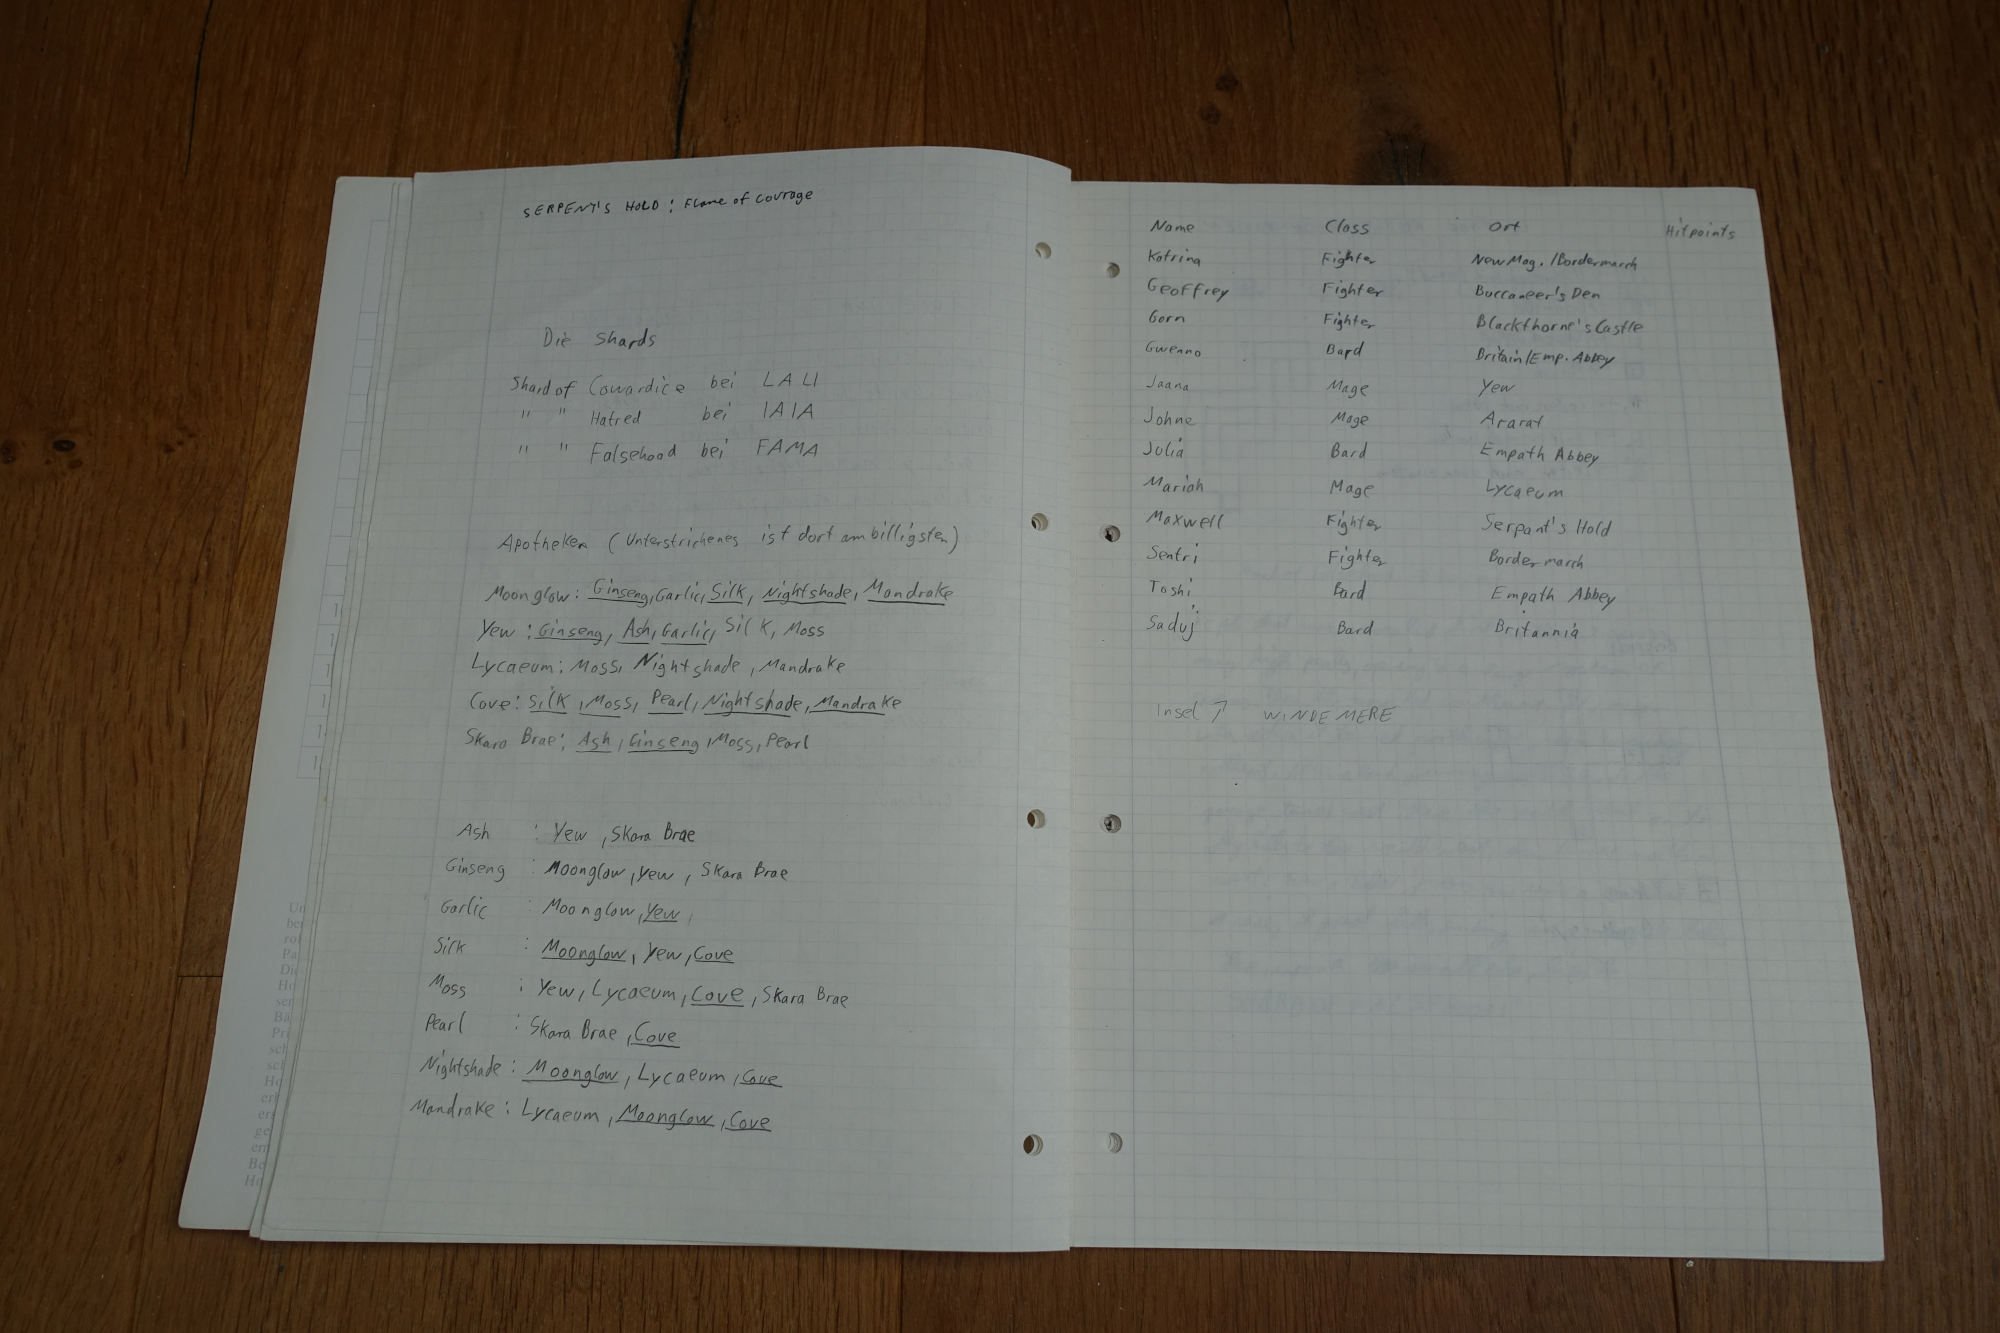 SERPENT'S HOLD : Flame of Courage
Die Shards
Shard of Cowardice bei LALI
" " Hatred bei IAIA
" " Falsehood bei FAMA
Apotheken (Unterstrichenes ist dort am billigsten)
Moonglow: Ginseng, Garlic, Silk, Nightshade, Mandrake
Yew : Ginseng, Ash, Garlic, Silk, Moss
Lycaeum: Moss, Nightshade, Mandrake
Cove: Silk, Moss, Pearl, Nightshade, Mandrake
Skara Brae: Ash, Ginseng, Moss, Pearl
Ash : Yew, Skara Brae
Ginseng : Moonglow, Yew, Skara Brae
Garlic : Moonglow, Yew,
Silk : Moonglow, Yew, Cove
Moss : Yew, Lycaeum, Cove, Skara Brae
Pearl : Skara Brae, Cove
Nightshade : Moonglow, Lycaeum, Cove
Mandrake : Lycaeum, Moonglow, Cove
Name Class Ort Hitpoints
Katrina Fighter New Mag. / Bordermarch
Geoffrey Fighter Buccaneer's Den
Gorn Fighter Blackthorne's Castle
Gwenno Bard Britain/Emp. Abbey
Jaana Mage Yew
Johne Mage Ararat
Julia Bard Empath Abbey
Mariah Mage Lycaeum
Maxwell Fighter Serpant's Hold
Sentri Fighter Bordermarch
Toshi Bard Empath Abbey
Saduj Bard Britannia
Insel ↗ WINDEMERE